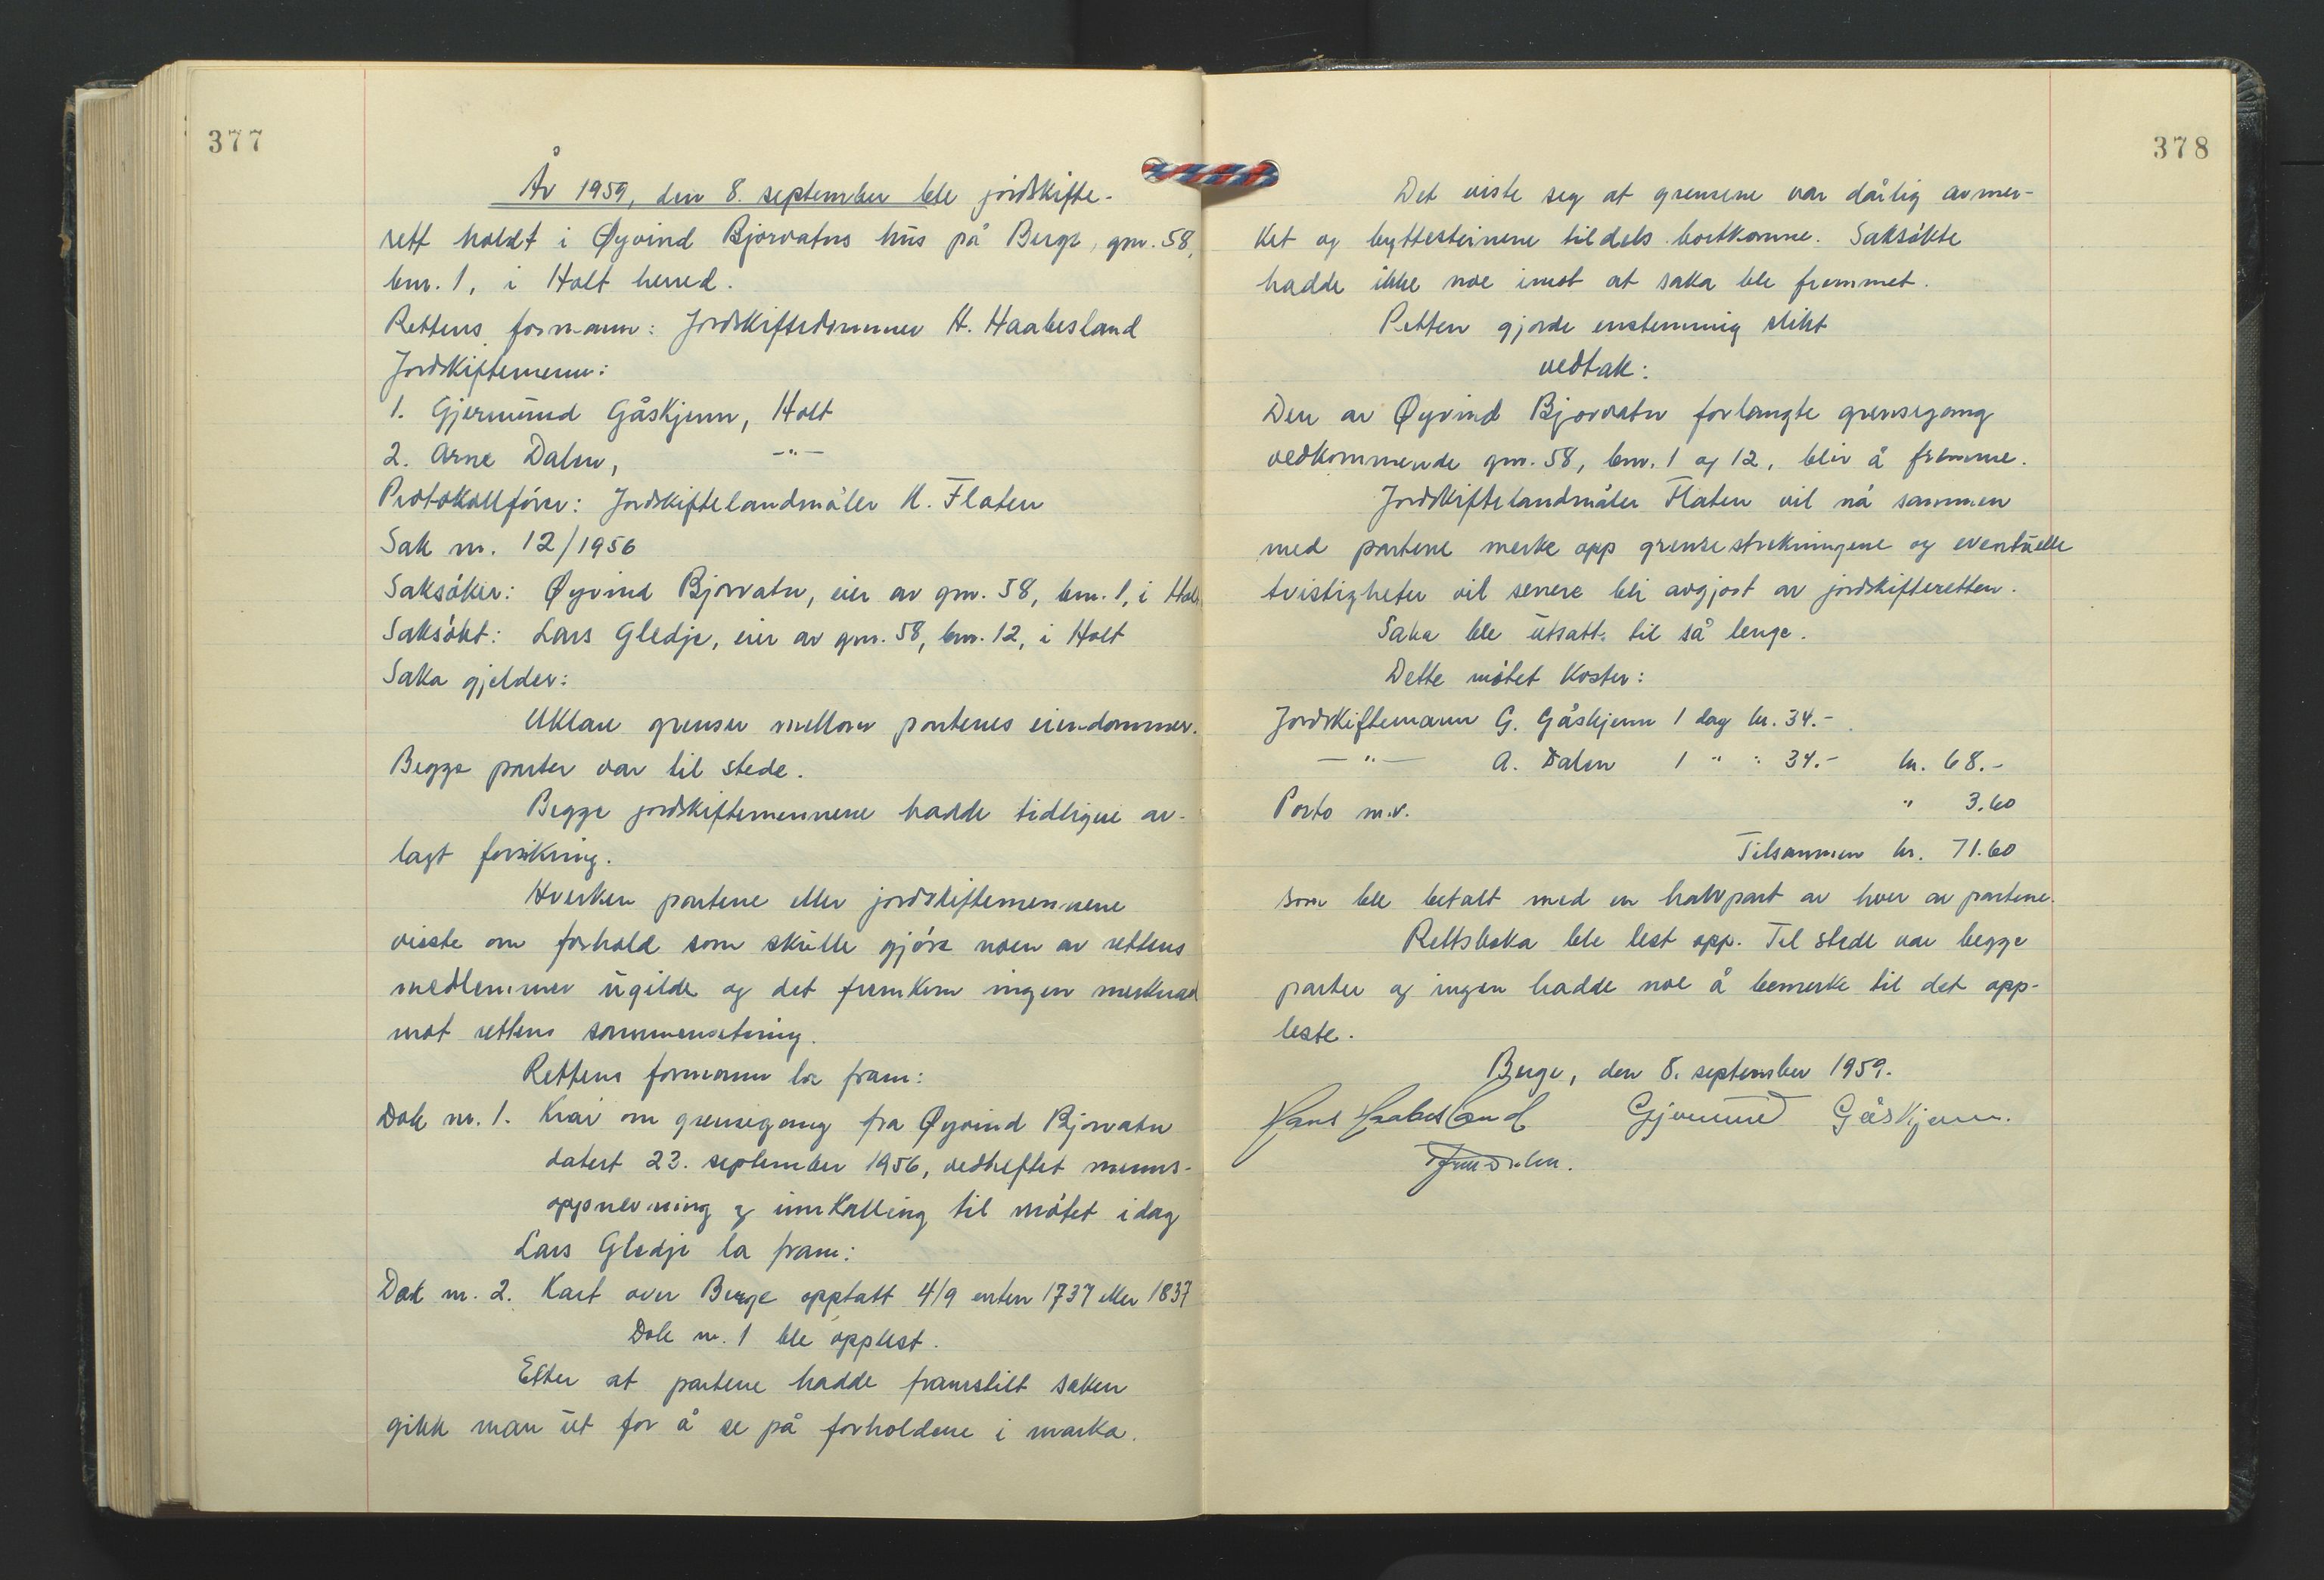 377
År 1959, den 8. september ble jordskifte-
rett holdt i Øyvind Bjorvatns hus på Berge, gnr. 58,
bnr. 1, i Holt herred.
Rettens formann: Jordskiftedommer H. Haabesland
Jordskiftemenn:
1. Gjermund Gåskjenn, Holt
2. Arne Dalen, -"-
Protokollfører: Jordskiftelandmåler K. Flaten
Sak nr. 12/1956
Saksøker: Øyvind Bjorvatn, eier av gnr. 58, bnr. 1, i Holt
Saksøkt: Lars Gledje, eier av gnr. 58, bnr. 12, i Holt
Saka gjelder:
Uklare grenser mellom partenes eiendommer.
Begge parter var til stede.
Begge jordskiftemennene hadde tidligere av-
lagt forsikring.
Hverken partene eller jordskiftemennene
visste om forhold som skulle gjøre noen av rettens
medlemmer ugilde og det fremkom ingen merknad
mot rettens sammensetning.
Rettens formann la fram:
Dok nr. 1. Krav om grensegang fra Øyvind Bjorvatn
datert 23. september 1956, vedheftet menns-
oppnevning og innkalling til møtet idag
Lars Gledje la fram:
Dok nr. 2. Kart over Berge opptatt 4/9 enten 1737 eller 1837
Dok nr. 1 ble opplest.
Etter at partene hadde framstilt saken
gikk man ut for å se på forholdene i marka.
378
Det viste seg at grensene var dårlig avmer-
ket og byttesteinene tildels bortkomne. Saksøkte
hadde ikke noe imot at saka ble fremmet.
Retten gjorde enstemmig slikt
vedtak:
Den av Øyvind Bjorvatn forlangte grensegang
vedkommende gnr. 58, bnr. 1 og 12, blir å fremme.
Jordskiftelandmåler Flaten vil nå sammen
med partene merke opp grensestrekningene og eventuelle
tvistigheter vil senere bli avgjort av jordskifteretten.
Saka ble utsatt til så lenge.
Dette møtet koster:
Jordskiftemann G. Gåskjenn 1 dag kr. 34.-
-"- A. Dalen 1 " " 34.- kr. 68.-
Porto m.v. " 3.60
Tilsammen kr. 71.60
som ble betalt med en halvpart av hver av partene.
Rettsboka ble lest opp. Til stede var begge
parter og ingen hadde noe å bemerke til det opp-
leste.
Berge, den 8. september 1959.
Hans Haabesland Gjermund Gåskjenn.